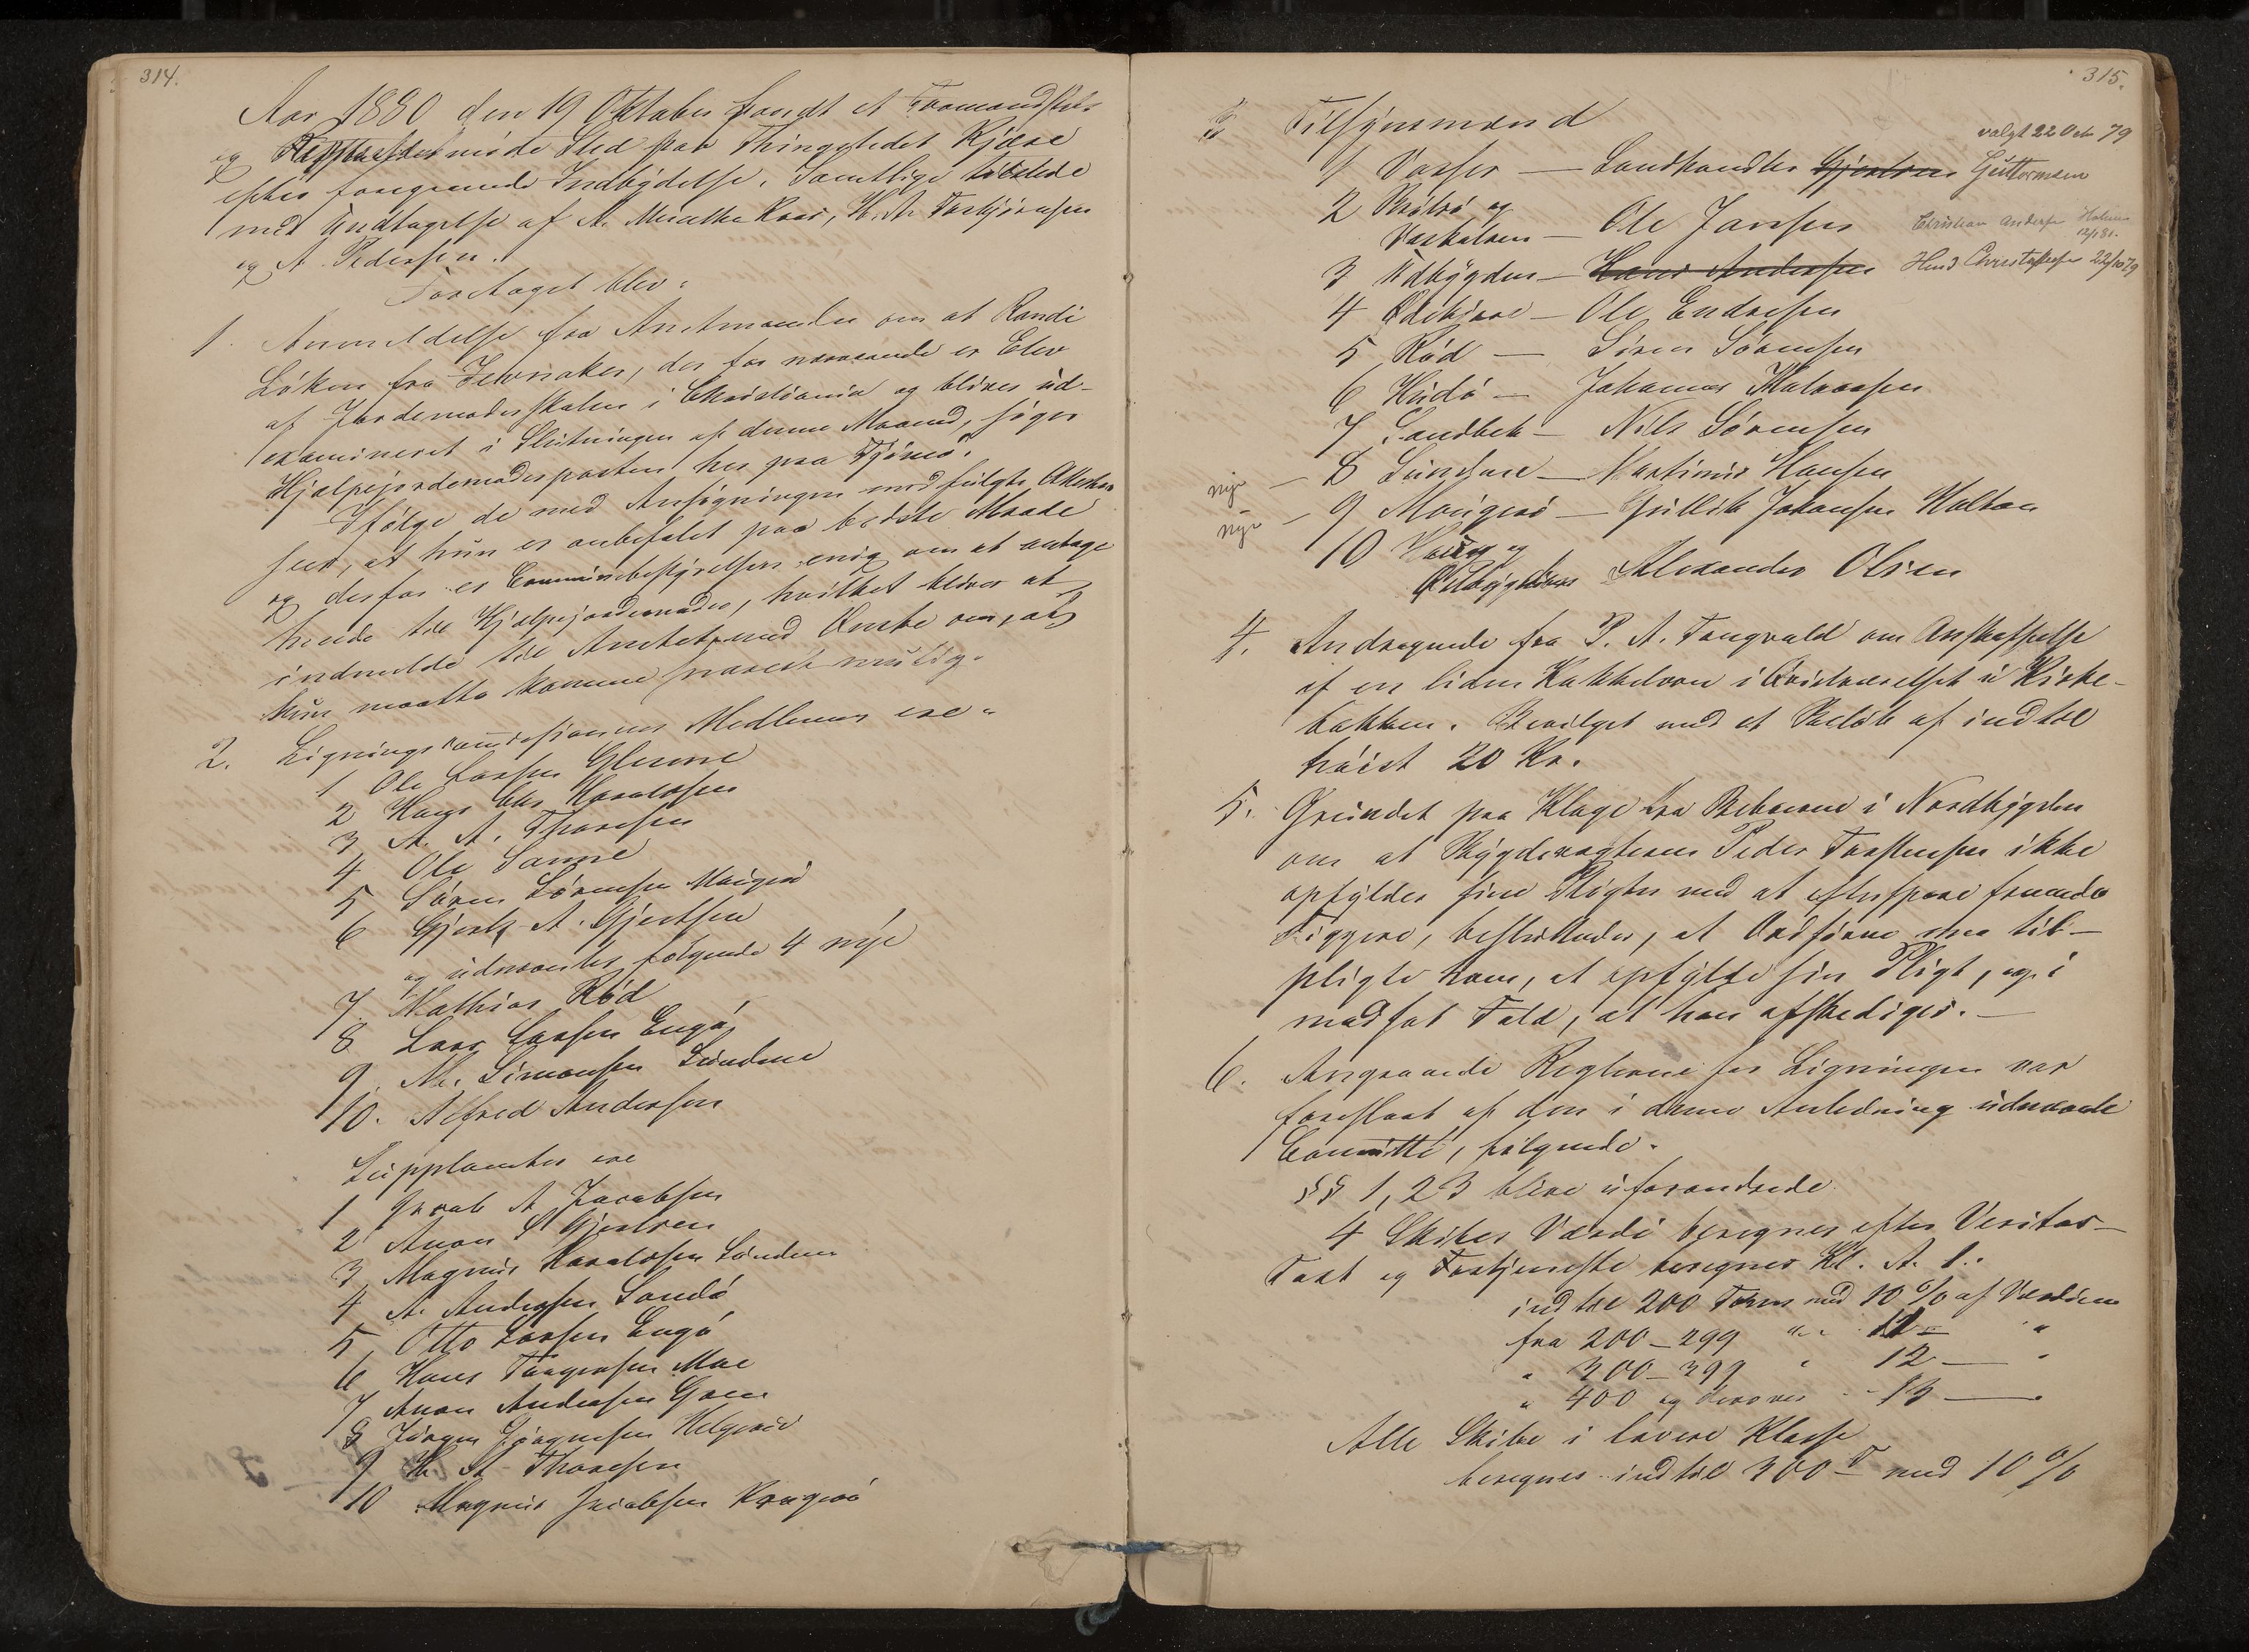 314.
Aar 1880 den 19 Oktober fandt et Formandskabs
og Repræsentmöde Sted paa Thingstedet Kjære
efter foregaaende Indbydelse. Samtlige tilstede
med Undtagelse af A. Roed, H. A. Torkjörnsen
og A. Pedersen.
Foretaget blev:
1. Anmeldelse fra Amtmanden om at Randi
Löken fra Jevnaker, der for nærværende er Elev
af Jordemoderskolen i Christiania og bliver ud-
examineret i Slutningen af denne Maaned, söger
Hjælpejordemoderposten her paa Tjömö.
Ifölge de med Ansögningen medfulgte Attester
sees, at hun er anbefalet paa bedste Maade
og derfor er Communebestyrelsen enig om at antage
hende til Hjælpejordemoder, hvilket bliver at
indmelde til Amtet med Önske om, at
hun maatte komme snarest mulig.
2. Ligningskommissionens Medlemmer ere:
1 Ole Larsen Glenne
2 Hans Chr Haraldsen
3 A. A. Thoresen
4 Ole Sanne
5 Sören Sörensen Maugerö
6 Gjert A. Gjertsen
og udnævntes fölgende 4 nye
7. Mathias Röd
8 Lars Larsen Engö
9. M. Simonsen Sundene
10. Alfred Andersen
Supplanter ere
1 Jacob A Jacobsen
2 Anon S Gjertsen
3 Magnus Haraldsen Sundene
4 A. Andersen Sandö
5 Otto Larsen Engö
6 Hans Torgersen Moe
7 Anon Andersen Grem
8 Jörgen Jörgensen Helgeröd
9 H. A Thoresen
10 Magnus Jacobsen Krugerö
315.
3 Tilsynsmænd
valgt 22 Octr 79
1 Vasser — Landhandler Gjertsen Guttormsen
2 Brötsö og
Vaskalven — Ole Jansen Christian Andersen Holmen 12/1 81.
3 Udbygden — Hans Andersen Hans Christophersen 22/10 79
4 Ödekjære — Ole Endresen
5 Röd — Sören Sörensen
6 Hudö — Johannes Halvorsen
7 Sandbek — Nils Sörensen
nye — 8 Sundene — Martinus Hansen
nye — 9 Maugerö — Gullik Johansen Holtan
10 Haug og
Alexander Olsen
4. Andragende fra P. A. Tangvald om Anskaffelse
af en liden Kakkelovn i Qvistværelset i Kirke-
bakken. Bevilget med et Belöb af indtil
höist 20 Kr.
5. Grundet paa Klage fra Beboerne i Nordbygden
om at Bygdevægteren Peder Torstensen ikke
opfylder sine Pligter med at efterspore fremmede
Tiggere, besluttedes, at Ordföreren maa til-
pligte ham, at opfylde sin Pligt, og i
modsat Fald, at han afskediges. —
6. Angaaende Reglerne for Ligningen var
foreslaaet af den i denne Anledning udnævnte
Committé, fölgende.
§§ 1, 2 3 blive uforandrede.
4 Skibes Værdi beregnes efter Veritas-
Taxt og Fortjeneste beregnes Kl. A. 1.:
indtil 200 Tons med 10 % af Værdien
fra 200 – 299 " 11 — "
" 300 – 399 " 12 — "
" 400 og derover " 13 —
Alle Skibe i lavere Klasse
beregnes indtil 300 T med 10 %